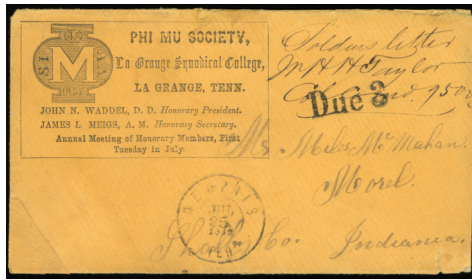 PHI MU SOCIETY,
La Grange Synodical College,
LA GRANGE, TENN.
JOHN N. WADDEL, D. D. Honorary President.
JAMES L. MEIGS, A. M. Honorary Secretary.
Annual Meeting of Honorary Members, First
Tuesday in July.
M
Soldiers letter
Taylor
Due 3
Miles McMahan
Morel.
MEMPHIS
TEN
Co. Indiana.